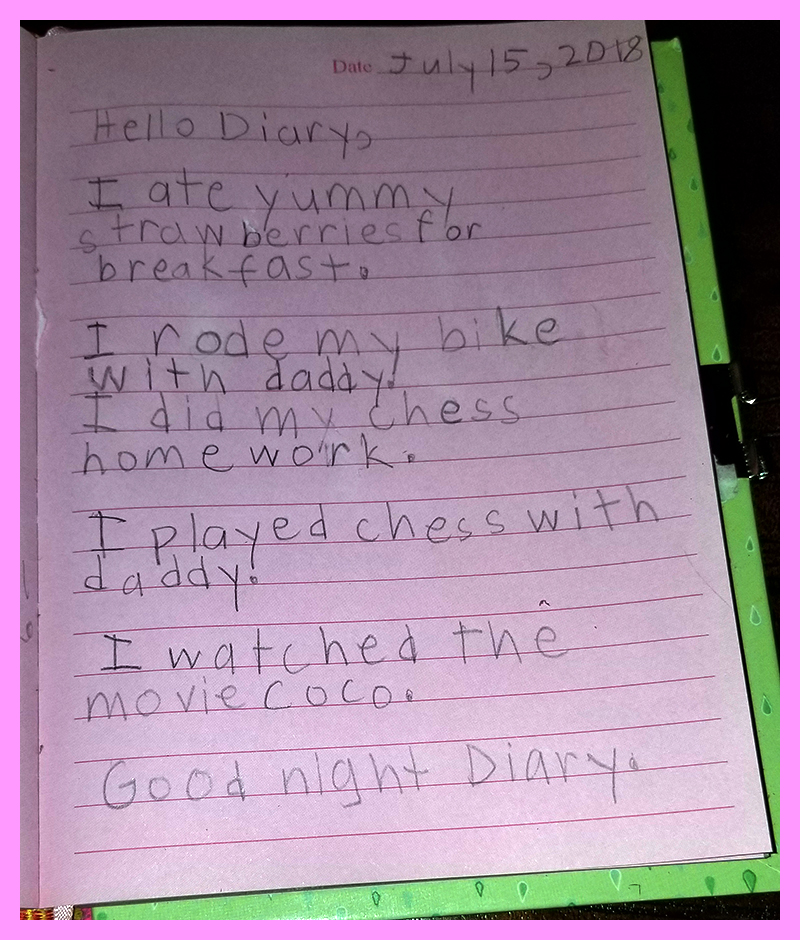 Date July 15, 2018
Hello Diary,
I ate yummy
strawberries for
breakfast.
I rode my bike
with daddy!
I did my chess
homework.
I played chess with
daddy!
I watched the
movie coco.
Good night Diary.